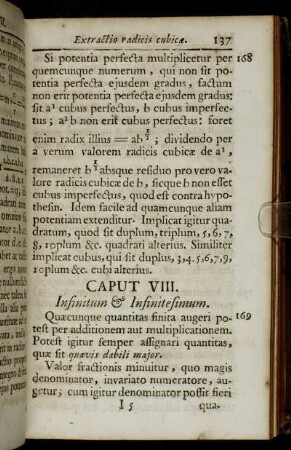 Extractio radicis cubicæ. 137
Si potentia perfecta multiplicetur per 168
quemcunque numerum, qui non sit po-
tentia perfecta ejusdem gradus, factum
non erit potentia perfecta ejusdem gradus:
sit a³ cubus perfectus, b cubus imperfec-
tus; a³ b non erit cubus perfectus: foret
enim radix illius = ab^{1/2}; dividendo per
a verum valorem radicis cubicæ de a³,
remaneret b^{1/2} absque residuo pro vero va-
lore radicis cubicæ de b, sicque b non esset
cubus imperfectus, quod est contra hypo-
thesin. Idem facile ad quamcunque aliam
potentiam extenditur. Implicat igitur qua-
dratum, quod sit duplum, triplum, 5, 6, 7,
8, 10plum &c. quadrati alterius. Similiter
implicat cubus, qui sit duplus, 3,4.5,6,7,9,
10plum &c. cubi alterius.
CAPUT VIII.
Infinitum & Infinitesimum.
Quæcunque quantitas finita augeri po- 169
test per additionem aut multiplicationem.
Potest igitur semper assignari quantitas,
quæ sit quavis dabili major.
Valor fractionis minuitur, quo magis
denominator, invariato numeratore, au-
getur; cum igitur denominator possit fieri
I 5 qua-